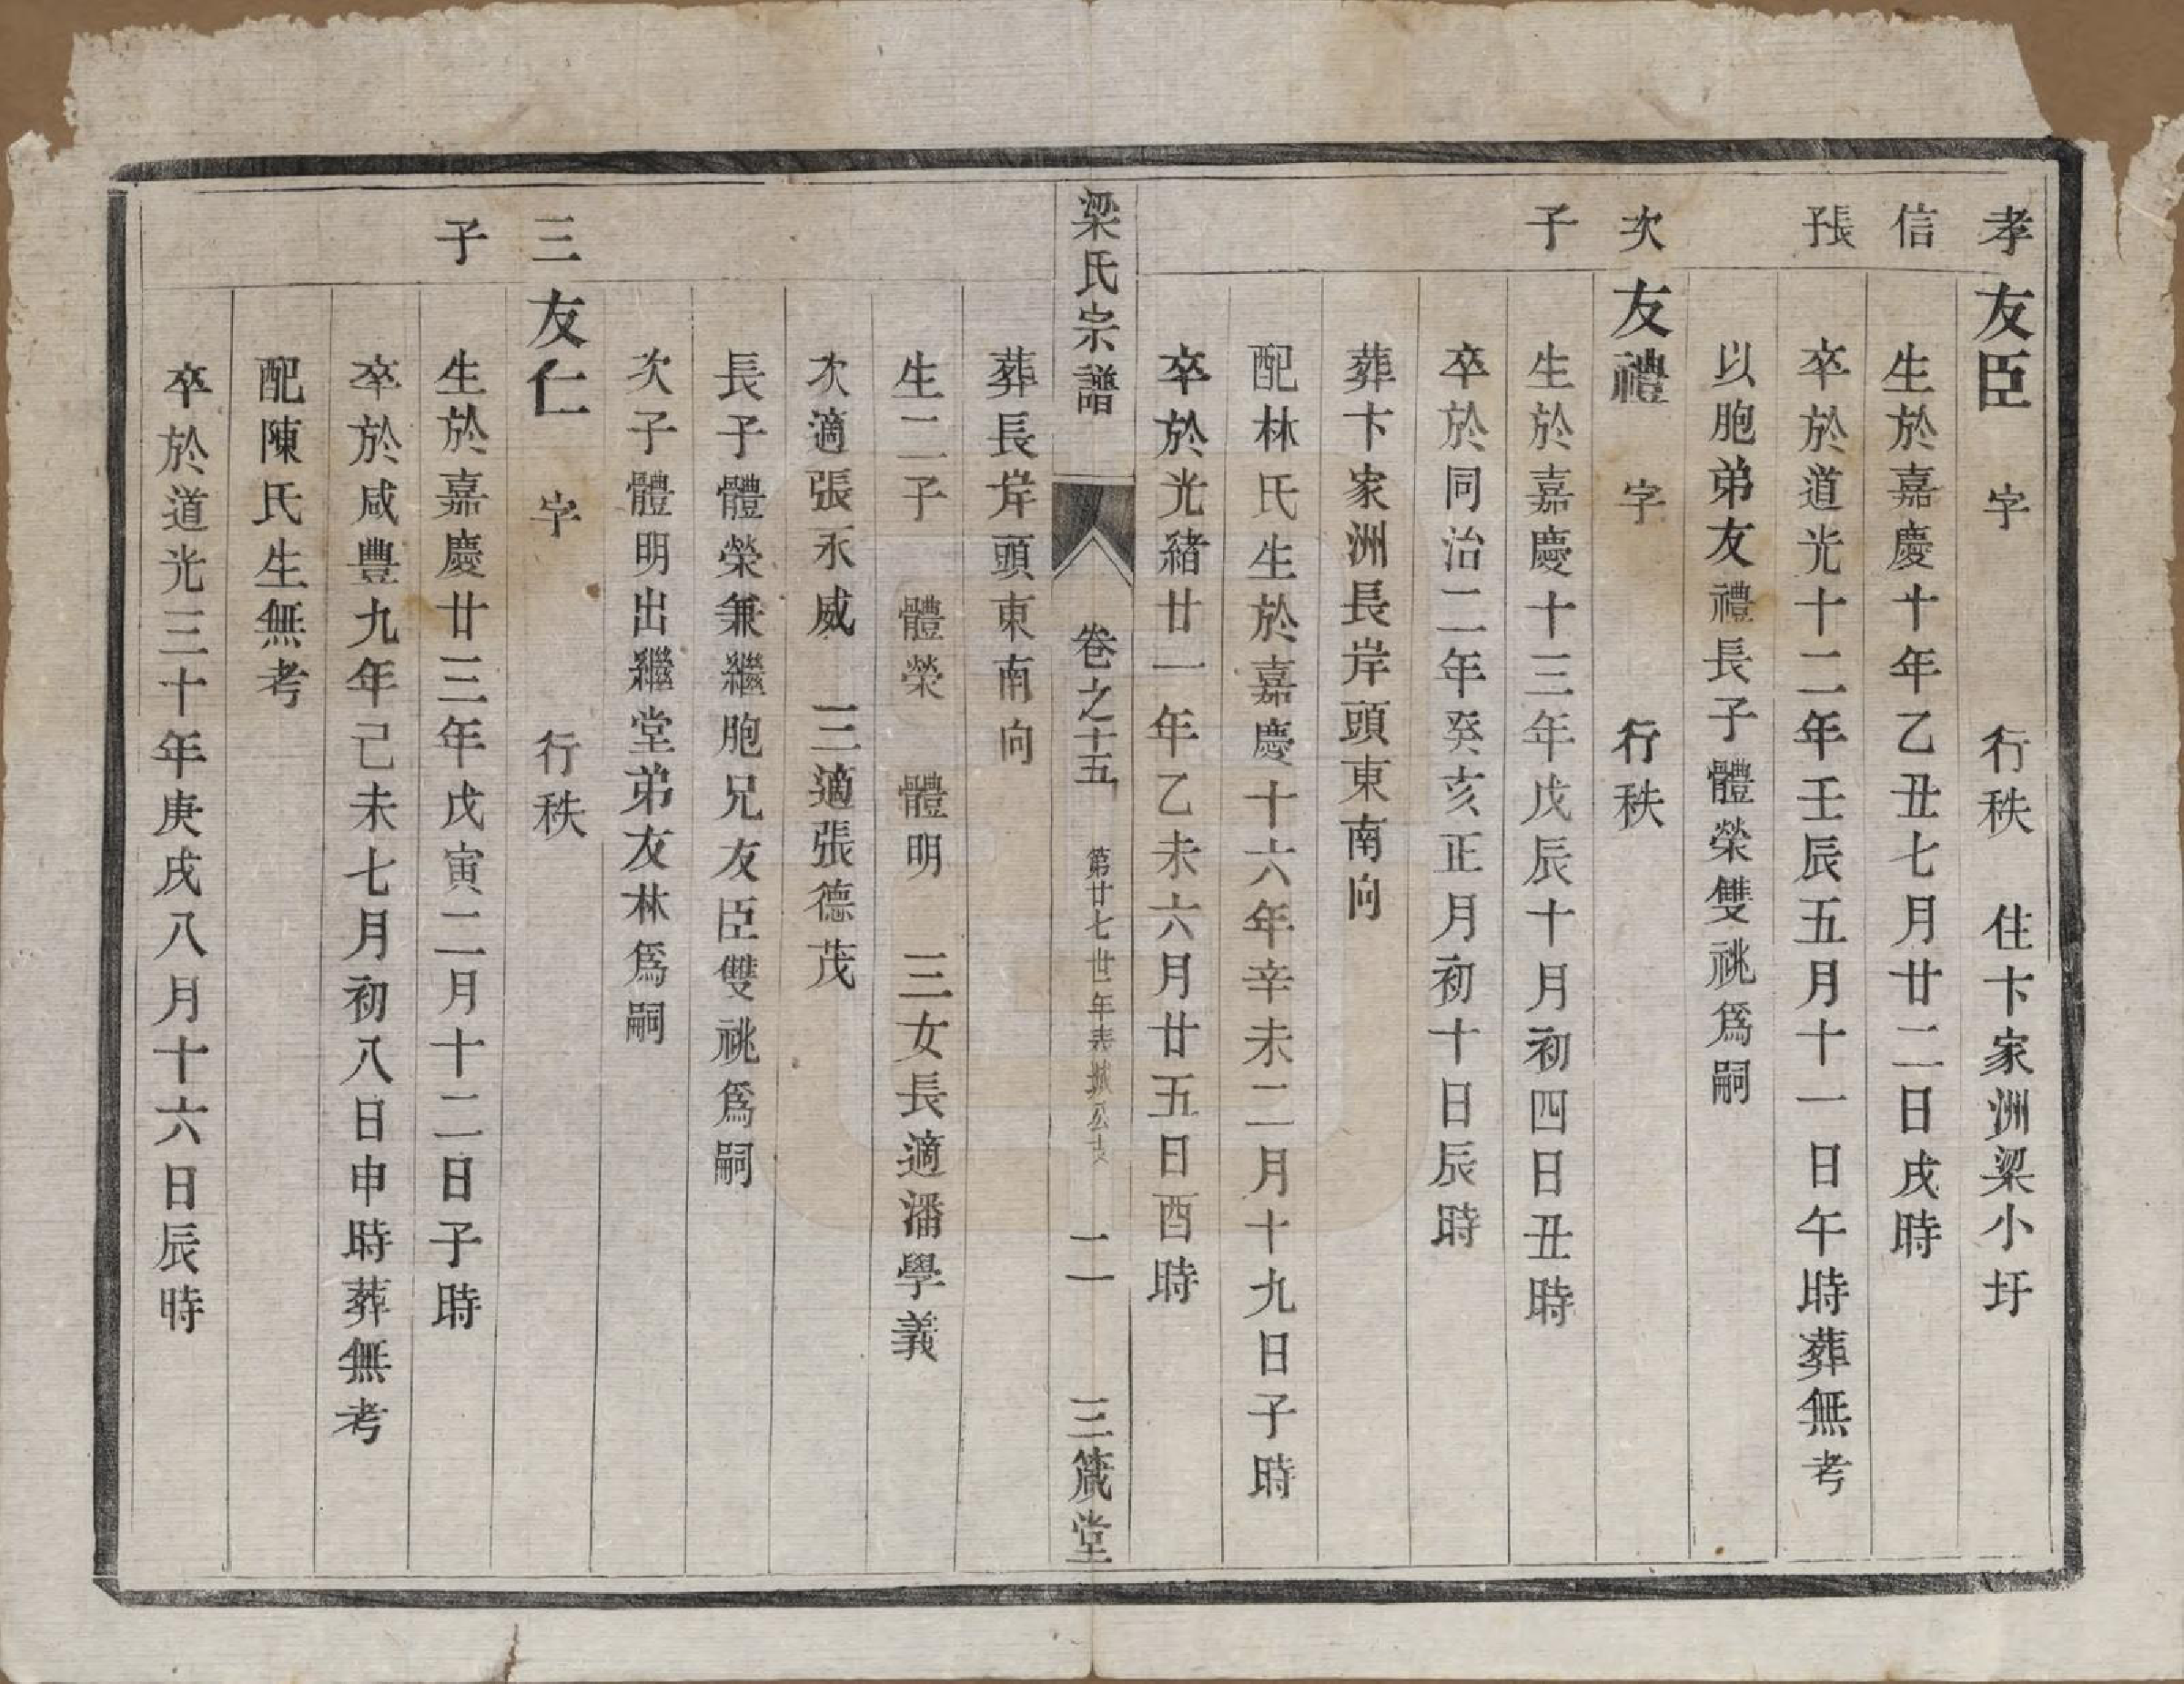 孝 友臣 字 行秩 住卞家洲梁小圩
信 生於嘉慶十年乙丑七月廿二日戌時
長子 卒於道光十二年壬辰五月十一日午時葬無考
以胞弟友禮長子體榮雙祧爲嗣
次 友禮 字 行秩
子 生於嘉慶十三年戊辰十月初四日丑時
卒於同治二年癸亥正月初十日辰時
葬卞家洲長岸頭東南向
配林氏生於嘉慶十六年辛未二月十九日子時
卒於光緒廿一年乙未六月廿五日酉時
梁氏宗譜 卷之十五 第廿七世年表 公 二 三箴堂
葬長岸頭東南向
生二子 體榮 體明 三女長適潘學義
次適張永威 三適張德茂
長子體榮兼繼胞兄友臣雙祧爲嗣
次子體明出繼堂弟友林爲嗣
三 友仁 字 行秩
子 生於嘉慶廿三年戊寅二月十二日子時
卒於咸豐九年己未七月初八日申時葬無考
配陳氏生無考
卒於道光三十年庚戌八月十六日辰時